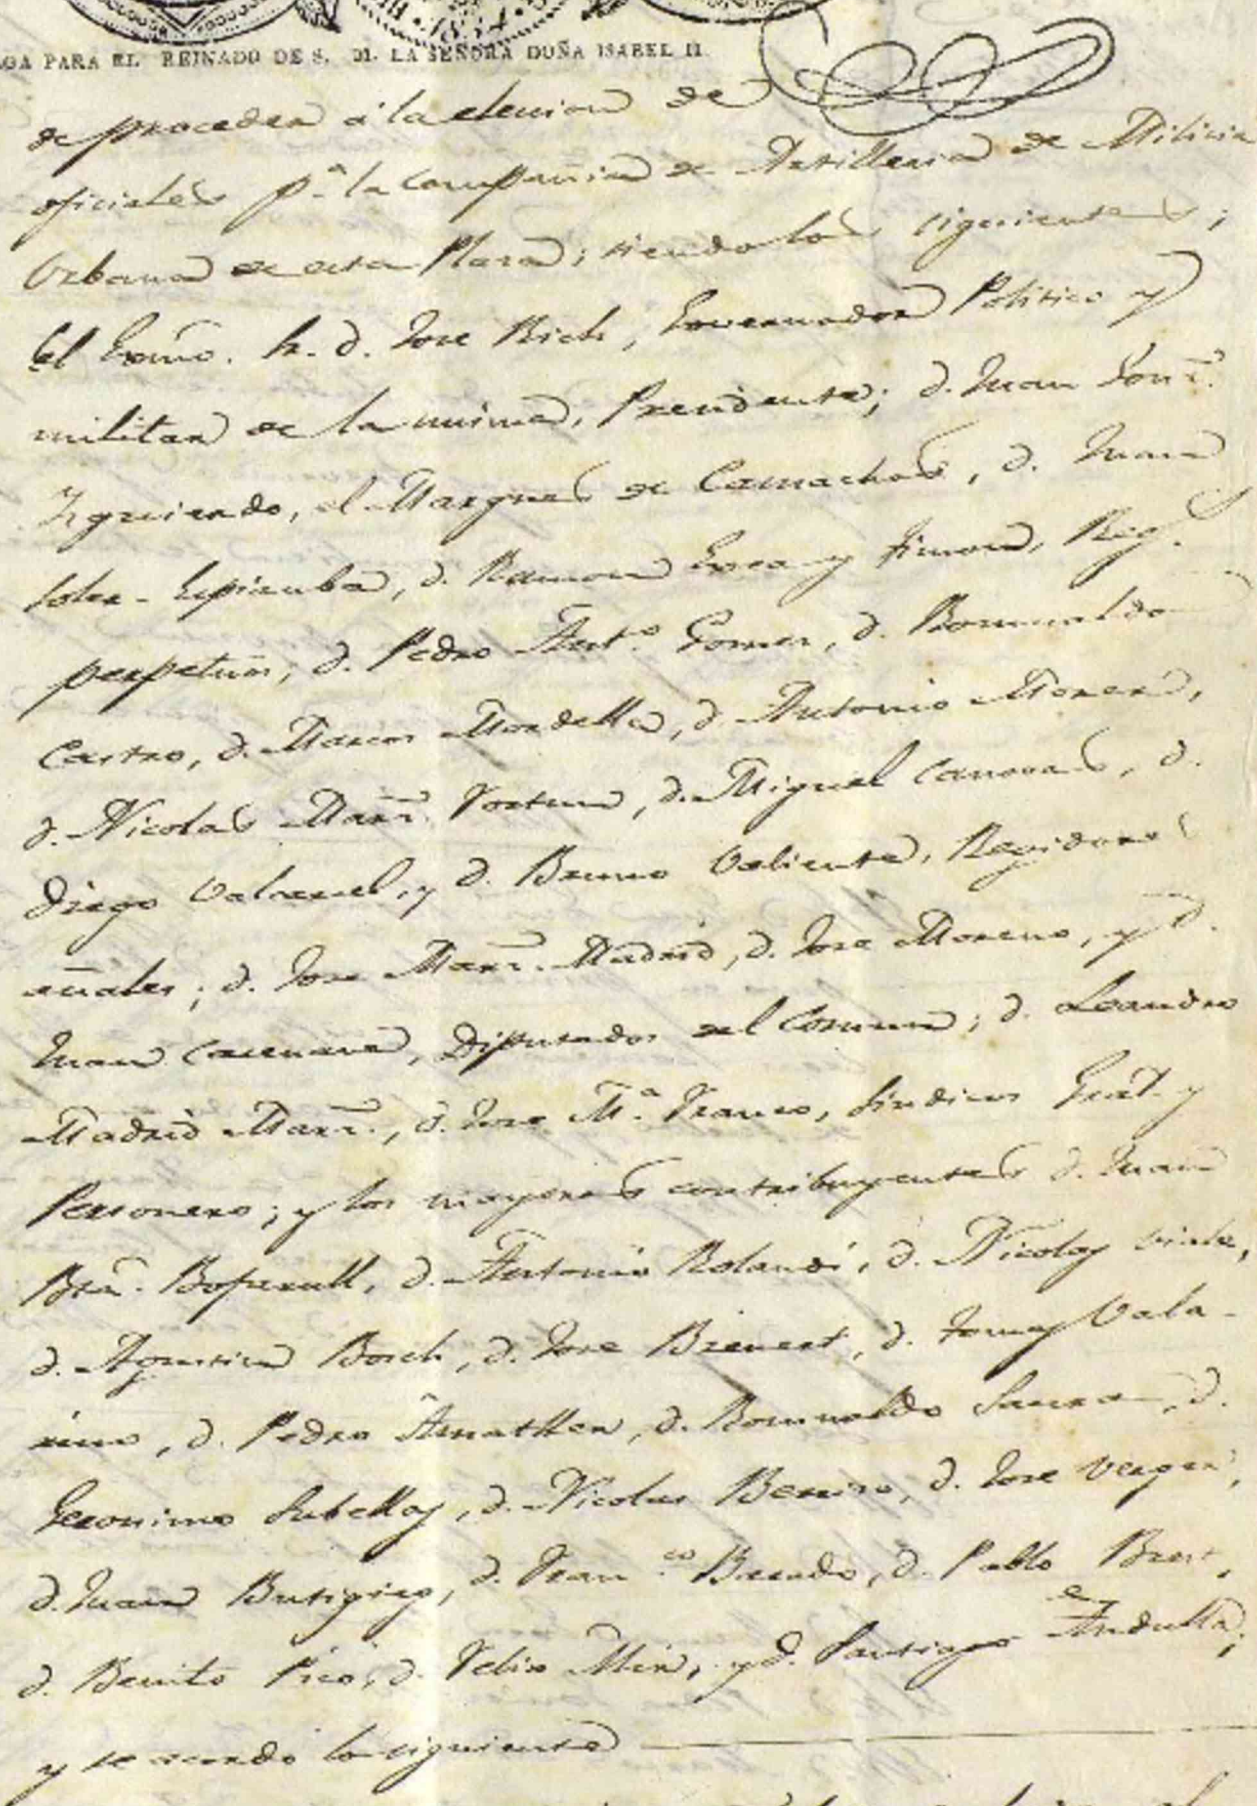 1834
GA PARA EL REINADO DE S. M. LA SEÑORA DOÑA ISABEL II
de proceder á la elecion de
oficiales p.ª la Compañia de Artilleria de Milicia
Urbana de esta Plaza; siendo los siguientes;
El Exmo. Sr. D. Jose Rich, Governador Politico y
militar de la misma, Presidente; D. Juan
Izquierdo, el Marques de Camachos, D. Juan
Soler Espiauba, D. Ramon y Simon, Reg.s
perpetuos; D. Pedro Ant.º Gomez, D. Romualdo
Castro, D. Marcos Mordella, D. Antonio
D. Nicolas Marz. Fortun, D. Miguel Canovas, D.
Diego Valcarcel, y D. Bruno Valiente, Regidores
añales; D. Jose Marz. Madrid, D. Jose Moreno, y D.
Juan Casenave, Diputados del Comun; D. Leandro
Madrid Marz., D. Jose M.ª Franco, Sindicos Gral. y
Personero; y los mayores contribuyentes D. Juan
Bta. Bofarull, D. Antonio Rolandi, D. Nicolas Viale,
D. Agustin Bosch, D. Jose D. Tomas Vala-
rino, D. Pedro Amatller, D. Romualdo Saura, D.
Geronimo D. Nicolas D. Jose Verger,
D. Juan Butigieg, D. Fran.co D. Pablo
D. Benito Pico, D. Felix Mir, y D. Santiago de Andulla;
y se acordó lo siguiente